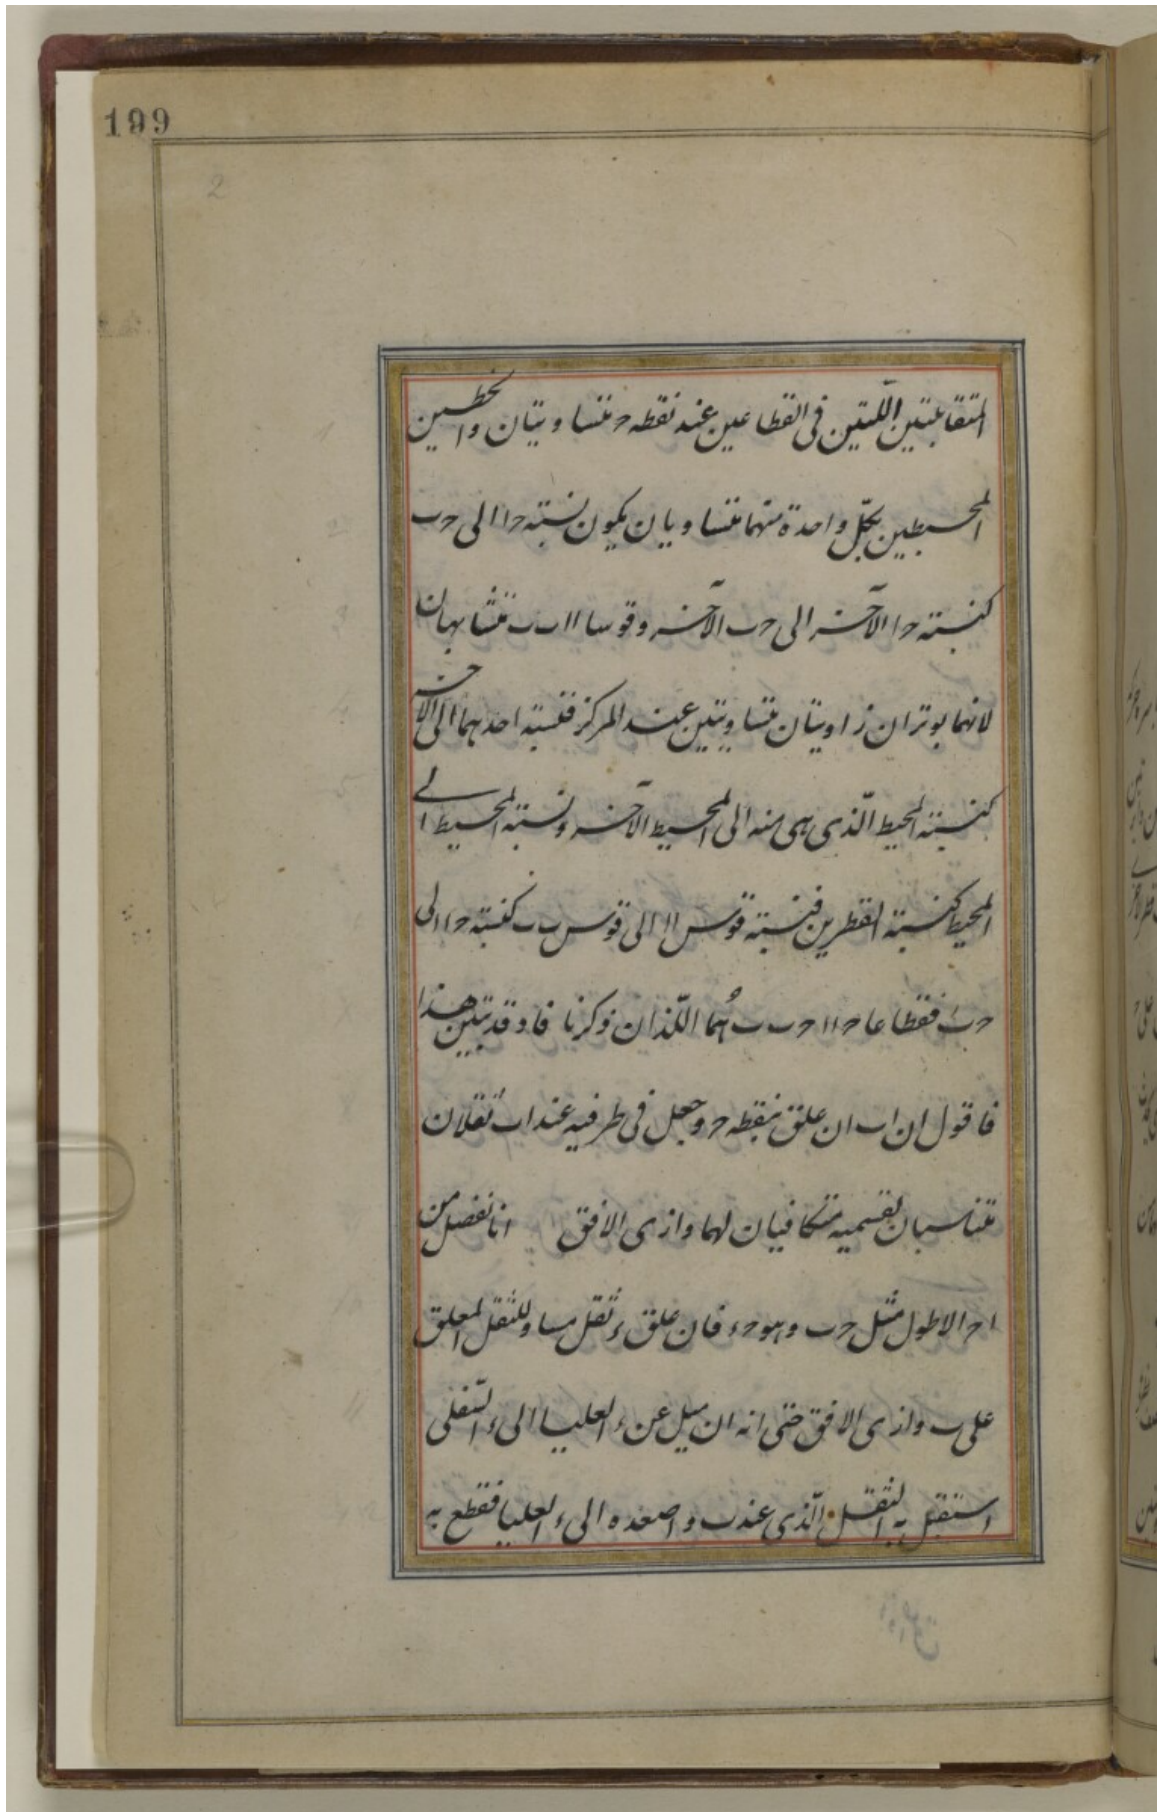 199
2
المتقابلتين اللتين فى القطاعين عند نقطه ح متساويتان والخطين
المحيطين بكل واحدة منهما متساويان يكون نسبته ح ا الى ح ب
كنسبته ح ا الآخر الى ح ب الآخر وقوسا ا ا ب ب متشابهان
لانهما يوتران زاويتان متساويتين عند المركز فنسبته احدهما الى الآخر
كنسبته المحيط الّذى هى منه الى المحيط الآخر ونسبته المحيط الے
المحيط كنسبته القطرين فنسبته قوس ا ا الى قوس ب ب كنسبته ح ا الى
ح ب فقطاعا ح ا ا ح ب ب هُما اللّذان ذكرنا فاذ قد تبين هذا
فاقول ان ا ب ان علق بنقطه ح وجعل فى طرفيه عند ا ب ثقلان
متناسبان لقسميه متكافيان لهما وازى الافق انا نفصل من
ا ح الاطول مثل ح ب وهو ح ء فان علق ء ثقل مساو للثقل المعلق
على ب وازى الافق حتى انه ان ميل عن ء العليا الى ء السّفلى
استقبل به الثقل الّذى عند ب واصعده الى ء العليا فقطع به